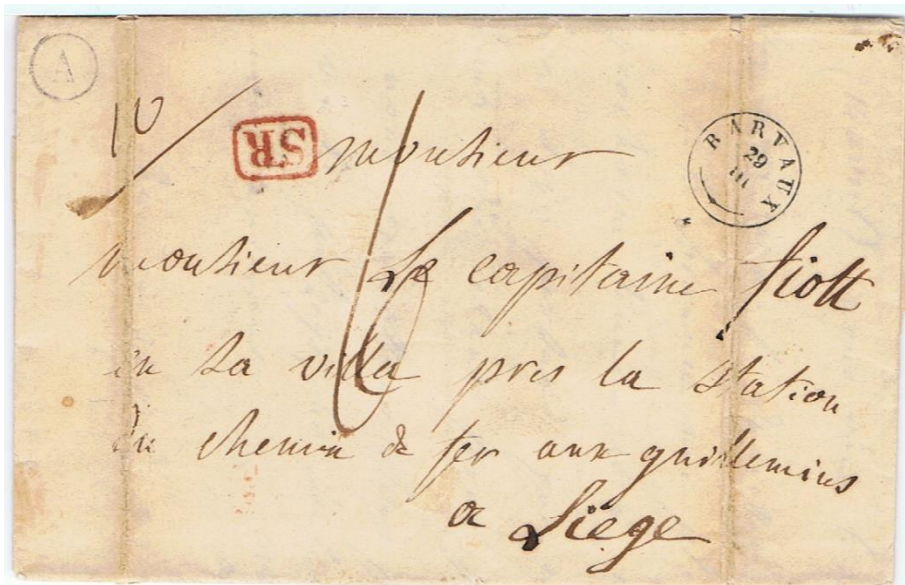 A
10
SR
BARVAUX
29
III
6
monsieur
monsieur Le capitaine
en sa villa pres la station
du chemin de fer aux guillemins
a Liege